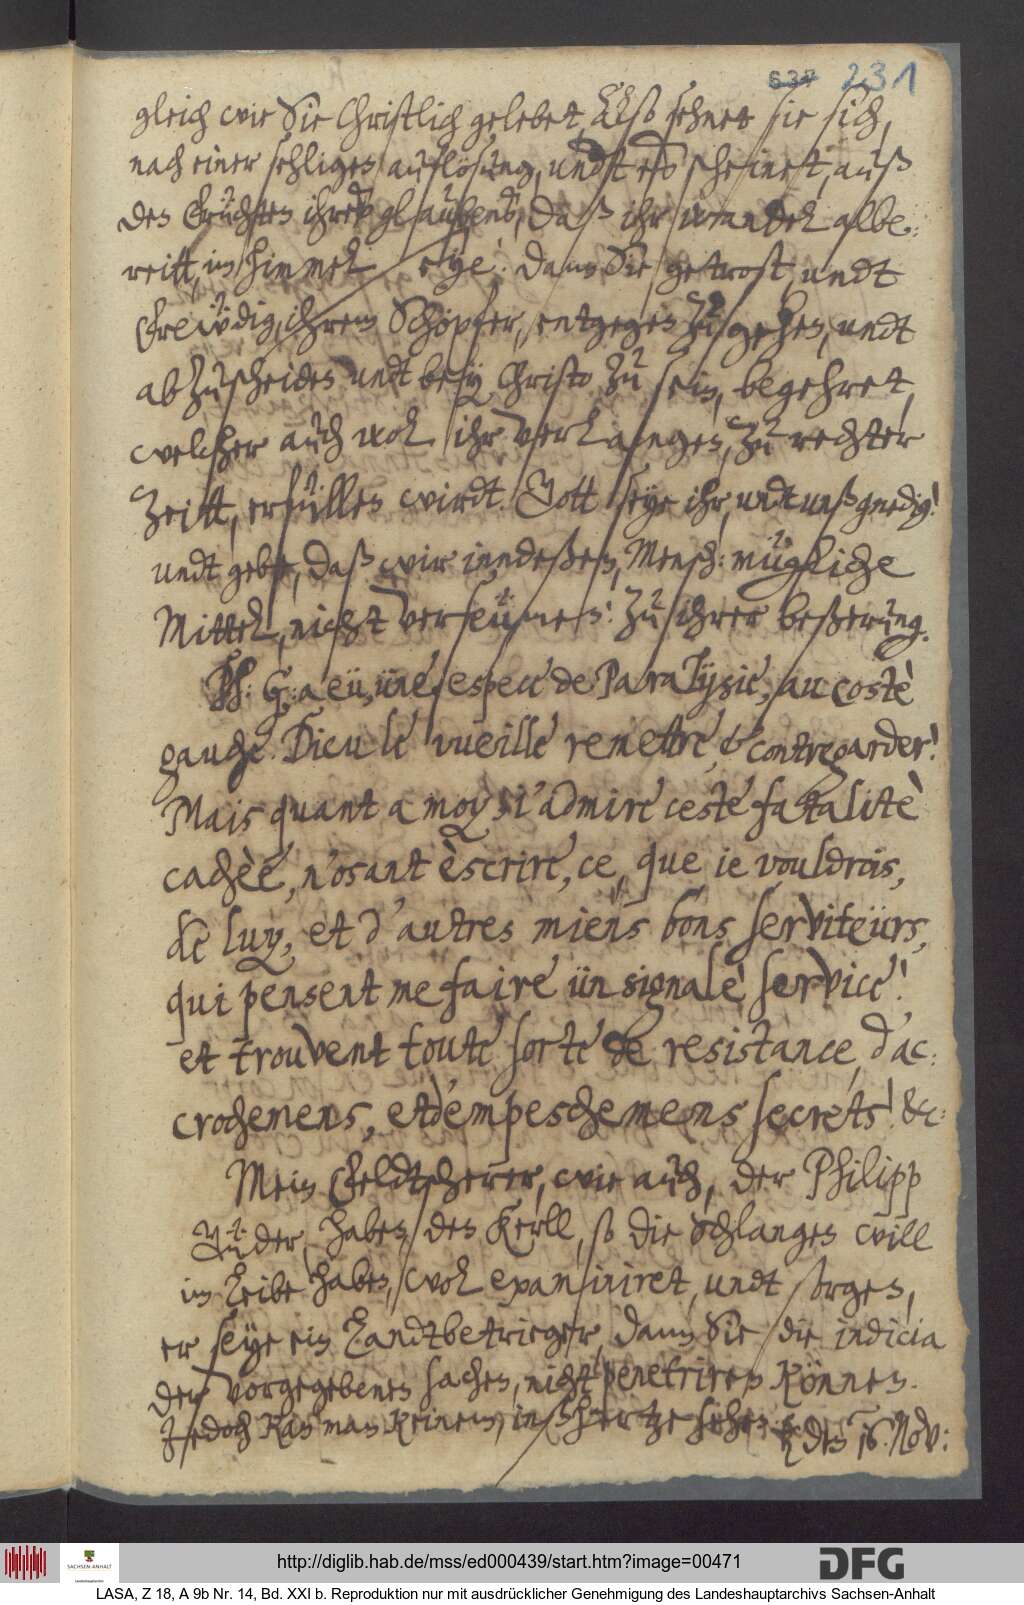 637 231
gleich wie Sie Christlich gelebet, Also sehnet sie sich,
nach einer sehligen auflösung, undt es scheinet, auß
den früchten ihres glaubens, daß ihr wandel albe,,
reitt, im himmel seye: dann Sie getrost, undt
frewdig, ihrem Schöpfer, entgegen zu gehen, undt
abzuscheiden undt bey Christo zu sein, begehret,
welcher auch wol ihr verlangen, zu rechter
Zeitt, erfüllen wirdt. Gott seye ihr, undt unß gnedig!
undt gebe, daß wir indeßen, Mensch: mügliche
Mittel, nicht verseümen! zu ihrer beßerung.
Th: G: a eü, üne, espece de Paralysie, au costè
gauche. Dieu le vueille remettre, & contregarder!
Mais quant a moy, i'admire ceste fatalitè
cachèe, n'osant èscrire, ce, que ie vouldrois,
de luy, et d'autres miens bons serviteürs,
qui pensent me faire ün signalè service!
et trouvent toute sorte de resistance, d'ac:
crochemens, et d'empeschemens secrets! &c:
Mein Feldtscherer, wie auch, der Philipp
Güder, haben den Kerll, so die Schlangen will
im Leibe haben, wol examiniret, undt sorgen,
er seye ein Landtbetrieger, dann Sie die indicia
der vorgegebenen sachen, nicht penetriren können.
Jedoch kan man keinem, inß hertze sehen. den 16. Nov:
http://diglib.hab.de/mss/ed000439/start.htm?image=00471
SACHSEN-ANHALT
Landeshauptarchiv
DFG
LASA, Z 18, A 9b Nr. 14, Bd. XXI b. Reproduktion nur mit ausdrücklicher Genehmigung des Landeshauptarchivs Sachsen-Anhalt